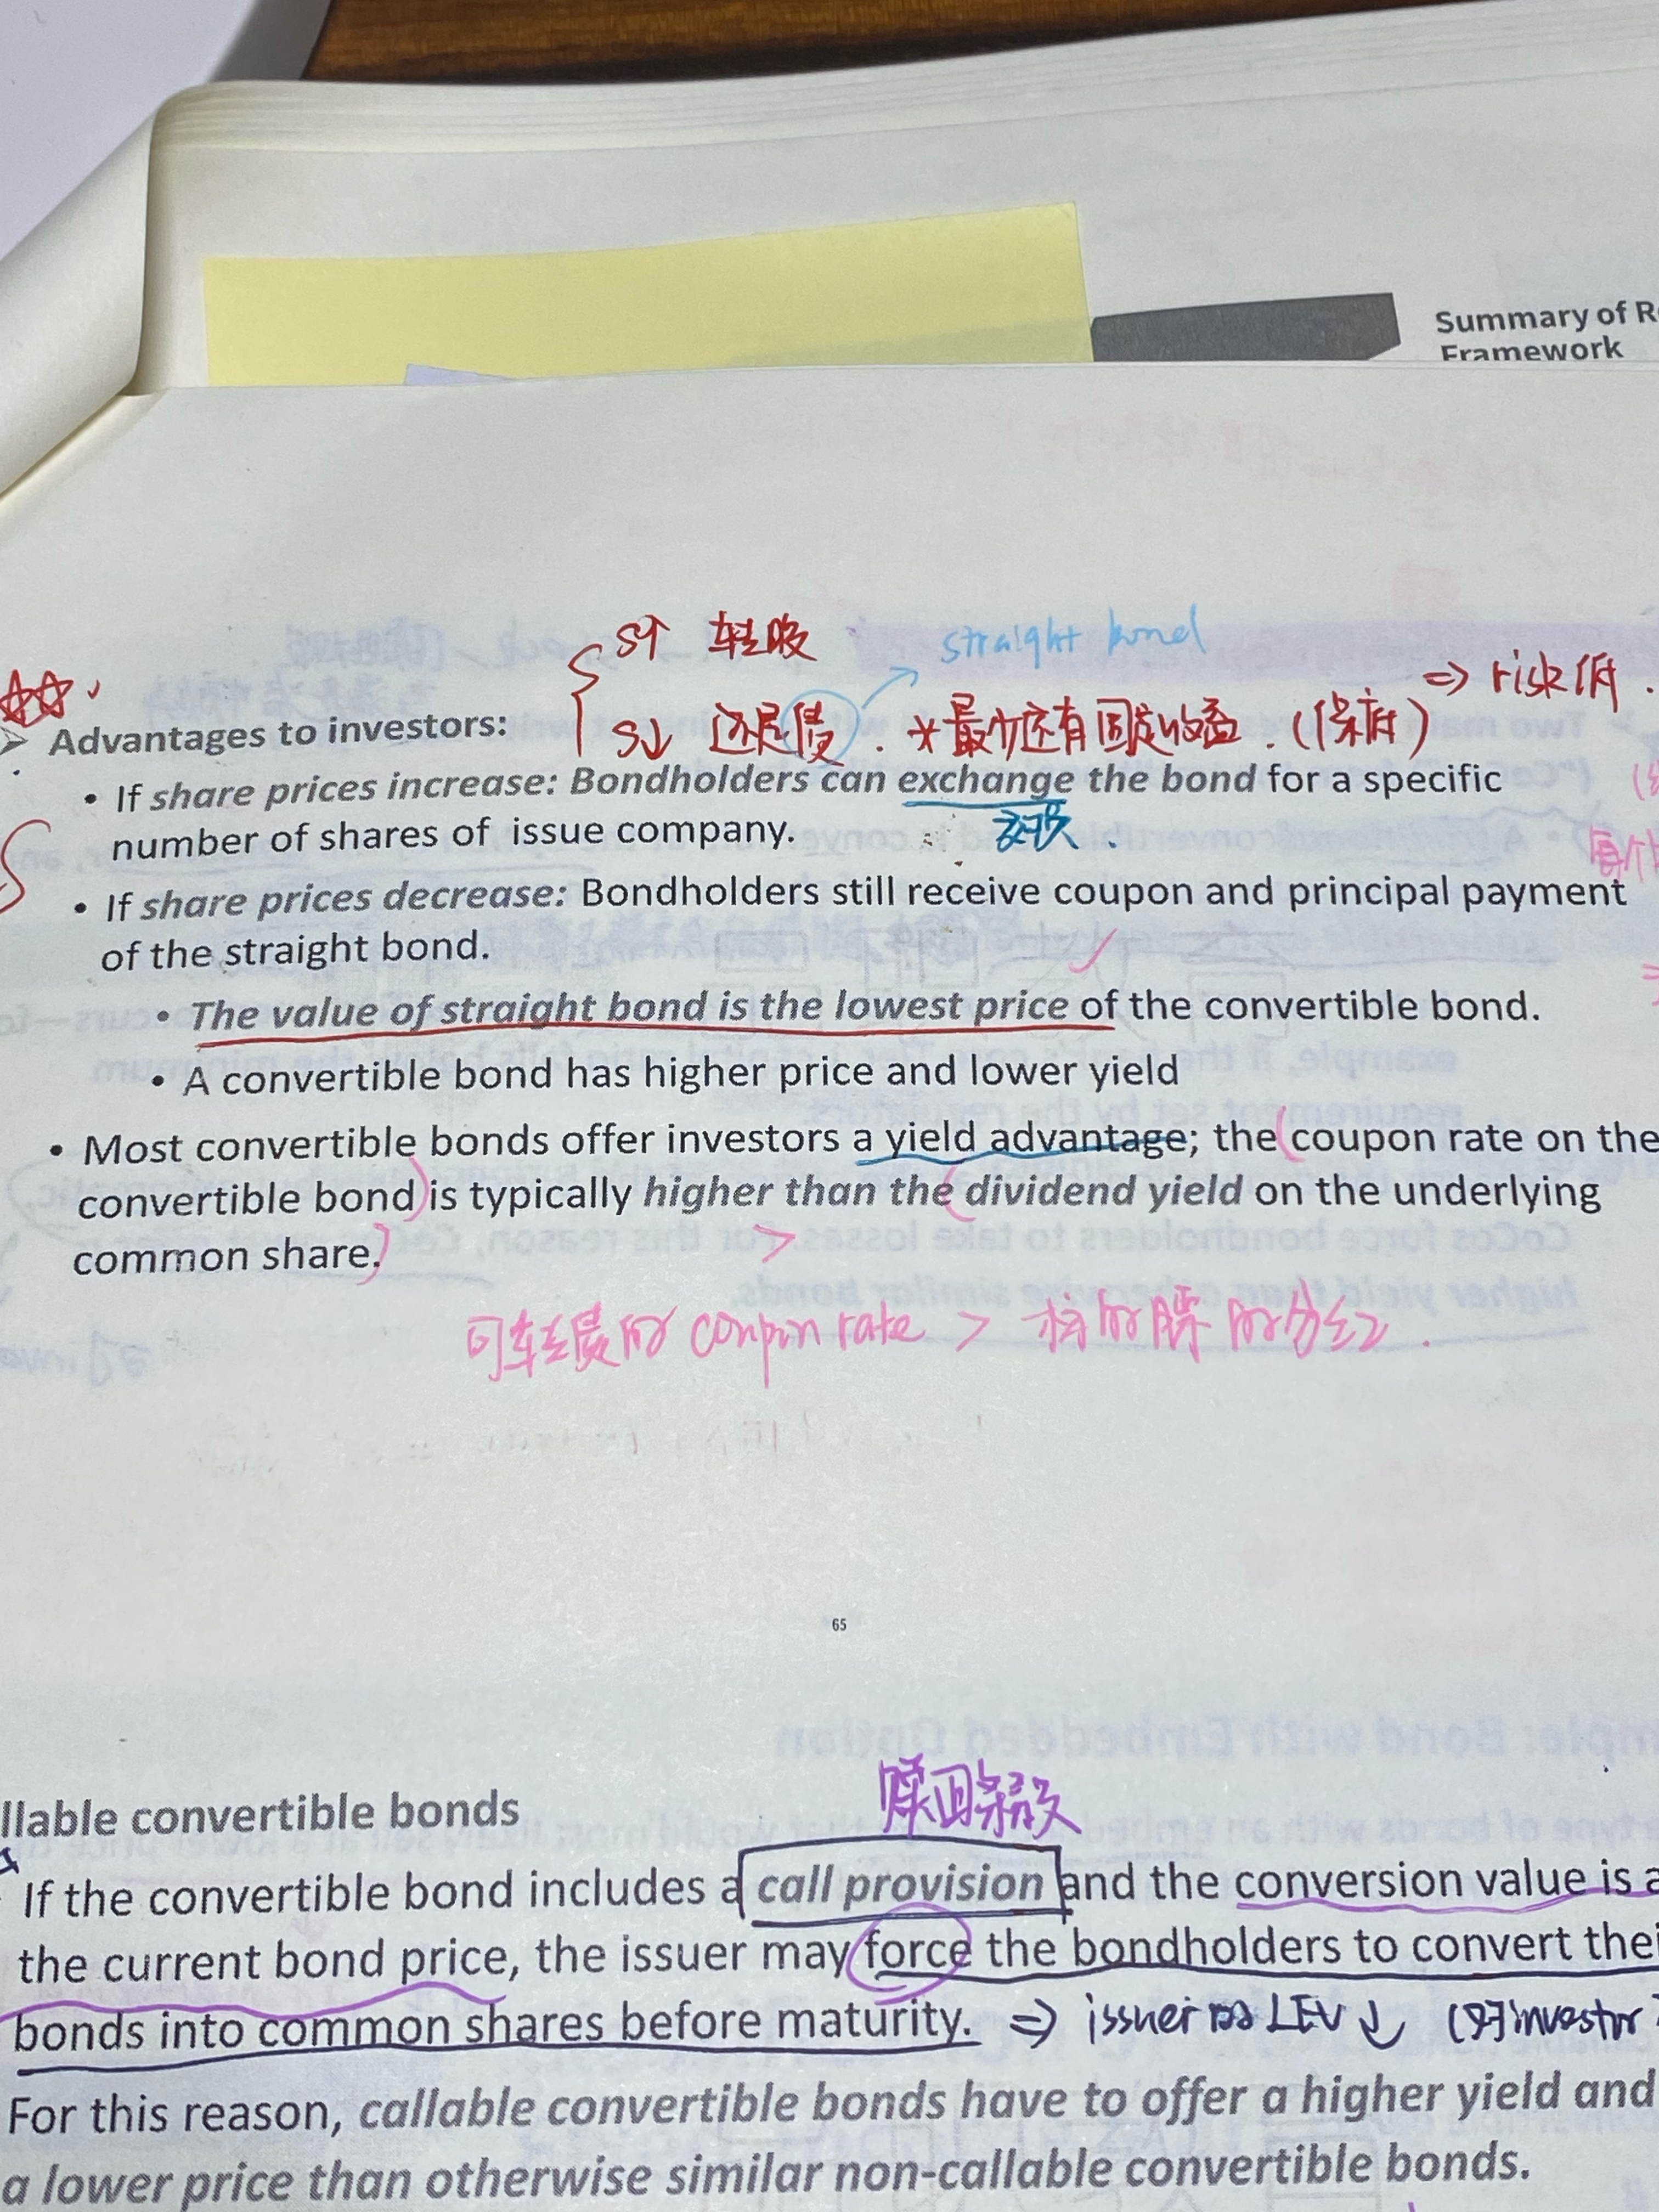 Summary of R
Framework
S↑ 转股
straight bond
⇒ risk低.
S↓ 还是债. *最少还有固定收益.(保底)
Advantages to investors:
• If share prices increase: Bondholders can exchange the bond for a specific
number of shares of issue company.
• If share prices decrease: Bondholders still receive coupon and principal payment
of the straight bond.
• The value of straight bond is the lowest price of the convertible bond.
• A convertible bond has higher price and lower yield
• Most convertible bonds offer investors a yield advantage; the coupon rate on the
convertible bond is typically higher than the dividend yield on the underlying
common share.
>
可转债的 coupon rate > 标的股票的分红.
65
llable convertible bonds
赎回条款
If the convertible bond includes a call provision and the conversion value is a
the current bond price, the issuer may force the bondholders to convert thei
bonds into common shares before maturity. ⇒ issuer的LEV↓ (对investor
For this reason, callable convertible bonds have to offer a higher yield and
a lower price than otherwise similar non-callable convertible bonds.